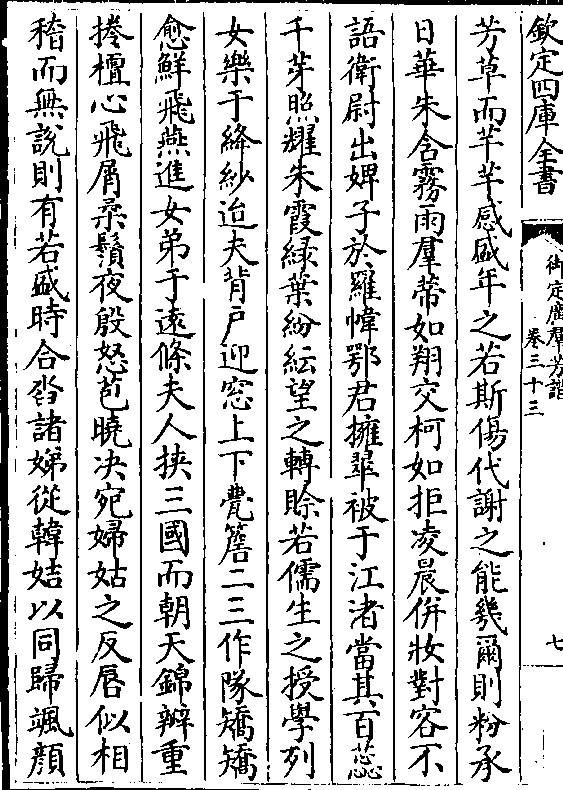 欽定四庫全書
御定廣羣芳譜
卷三十三
七
芳草而芊芊感盛年之若斯傷代謝之能幾爾則粉承
日華朱含霧雨羣蒂如翔交柯如拒凌晨併妝對客不
語衛尉出婢子於羅幃鄂君擁翠被于江渚當其百蕊
千芽照耀朱霞緑葉紛紜望之轉賒若儒生之授學列
女樂于絳紗迨夫背戶迎窓上下甍簷二三作隊矯矯
愈鮮飛燕進女弟于遠條夫人挾三國而朝天錦瓣重
捲檀心飛屑柔鬚夜殷怒苞曉决宛婦姑之反唇似相
稽而無説則有若盛時合沓諸娣從韓姞以同歸颯顔